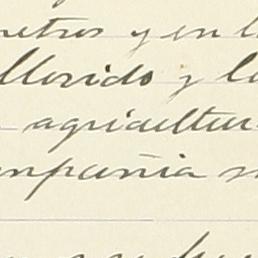 metros y en l
llovido y la
agricultur
ompañia s